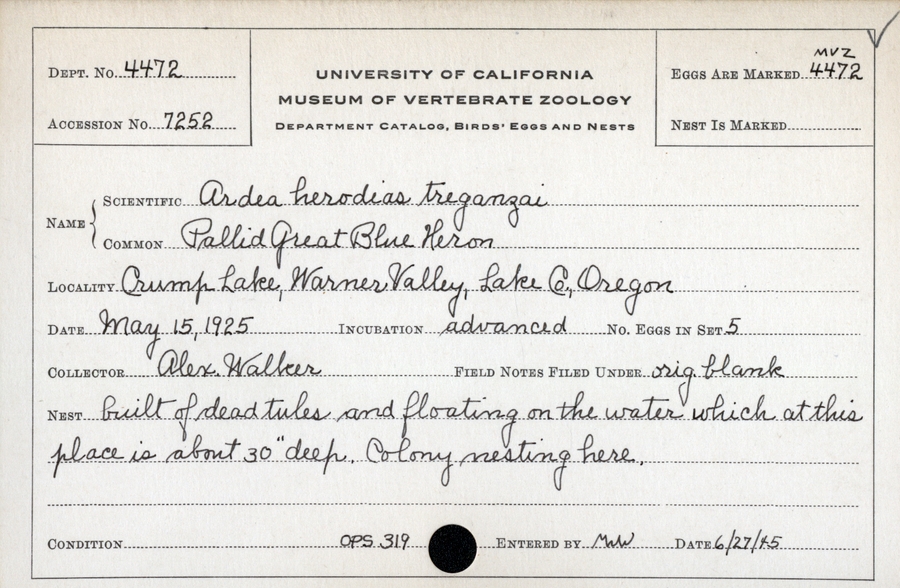 DEPT. No. 4472
ACCESSION No. 7252
UNIVERSITY OF CALIFORNIA
MUSEUM OF VERTEBRATE ZOOLOGY
DEPARTMENT CATALOG, BIRDS' EGGS AND NESTS
MVZ
EGGS ARE MARKED 4472
NEST IS MARKED
NAME
SCIENTIFIC Ardea herodias treganzai
COMMON Pallid Great Blue Heron
LOCALITY Crump Lake, Warner Valley, Lake Co., Oregon
DATE May 15, 1925 INCUBATION advanced No. EGGS IN SET 5
COLLECTOR Alex. Walker FIELD NOTES FILED UNDER orig. blank
NEST built of dead tules and floating on the water which at this
place is about 30" deep. Colony nesting here.
CONDITION OPS 319 ENTERED BY MWW DATE 6/27/45